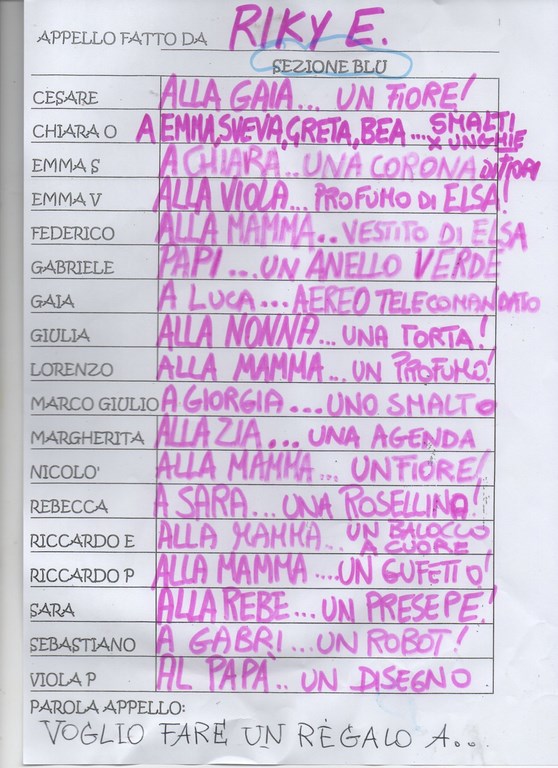 APPELLO FATTO DA RIKY E.
SEZIONE BLU
CESARE ALLA GAIA... UN FIORE!
CHIARA O A EMMA, SVEVA, GRETA, BEA... SMALTI X UNGHIE
EMMA S A CHIARA.. UNA CORONA DI FIORI
EMMA V ALLA VIOLA... PROFUMO DI ELSA!
FEDERICO ALLA MAMMA.. VESTITO DI ELSA
GABRIELE PAPI... UN ANELLO VERDE
GAIA A LUCA... AEREO TELECOMANDATO
GIULIA ALLA NONNA... UNA TORTA!
LORENZO ALLA MAMMA... UN PROFUMO!
MARCO GIULIO A GIORGIA... UNO SMALTO
MARGHERITA ALLA ZIA... UNA AGENDA
NICOLO' ALLA MAMMA... UN FIORE!
REBECCA A SARA... UNA ROSELLINA!
RICCARDO E ALLA MAMMA... UN BALOCCO A CUORE
RICCARDO P ALLA MAMMA.... UN GUFETTO!
SARA ALLA REBE... UN PRESEPE!
SEBASTIANO A GABRI... UN ROBOT!
VIOLA P AL PAPÀ.. UN DISEGNO
PAROLA APPELLO:
VOGLIO FARE UN REGALO A...